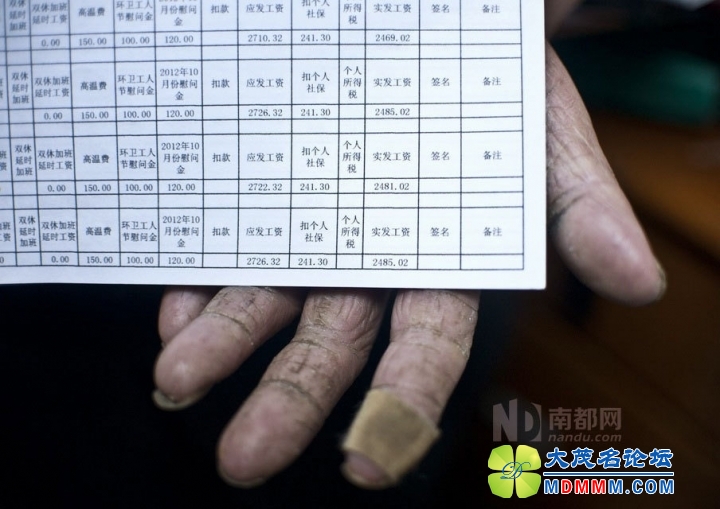 双休 双休加班 高温费 环卫工人 2012年10 扣款 应发工资 扣个人 个人 实发工资 签名 备注
加班 延时工资 节慰问金 月份慰问 社保 所得
金 税
0.00 150.00 100.00 120.00 2710.32 241.30 2469.02
双休 双休加班 高温费 环卫工人 2012年10 扣款 应发工资 扣个人 个人 实发工资 签名 备注
延时 延时工资 节慰问金 月份慰问 社保 所得
加班 金 税
0.00 150.00 100.00 120.00 2726.32 241.30 2485.02
双休 双休加班 高温费 环卫工人 2012年10 扣款 应发工资 扣个人 个人 实发工资 签名 备注
延时 延时工资 节慰问金 月份慰问 社保 所得
加班 金 税
0.00 150.00 100.00 120.00 2722.32 241.30 2481.02
双休 双休加班 高温费 环卫工人 2012年10 扣款 应发工资 扣个人 个人 实发工资 签名 备注
延时 延时工资 节慰问金 月份慰问 社保 所得
加班 金 税
0.00 150.00 100.00 120.00 2726.32 241.30 2485.02
ND 南都网
nandu.com
大茂名论坛
MDMMM.COM